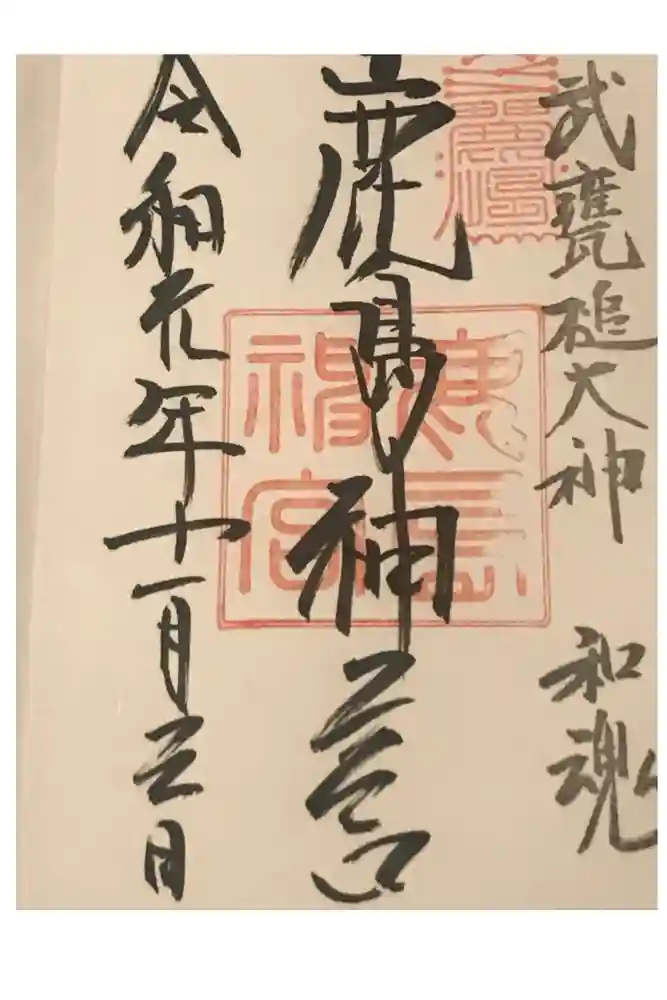 武甕槌大神 和魂
鹿島神宮
令和元年十一月三日
鹿島
神宮